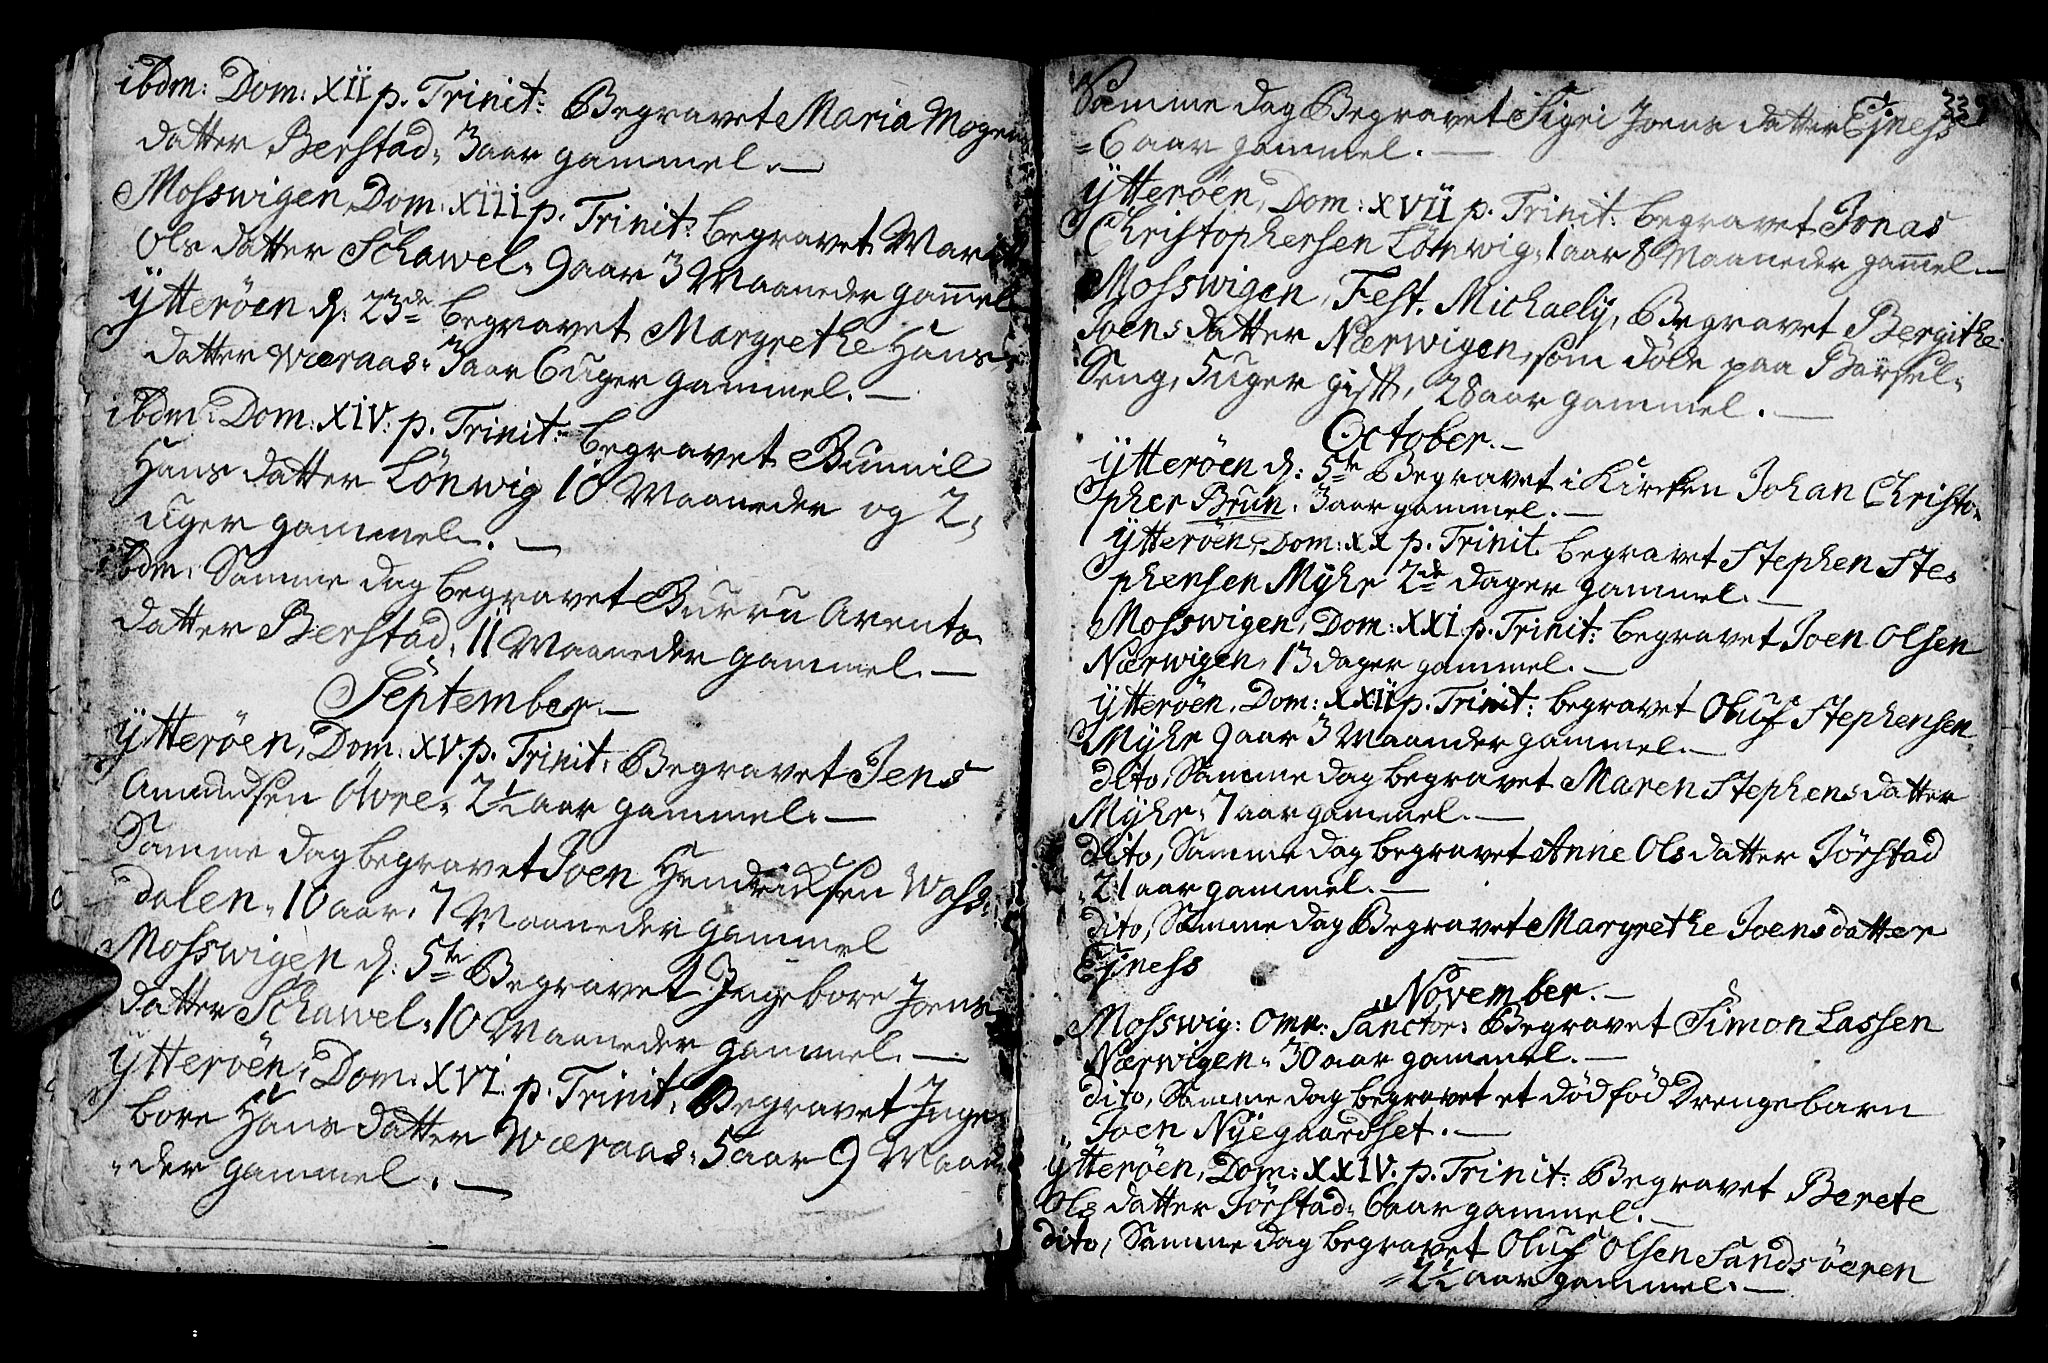 ibdm: Dom: XII p. Trinit: Begravet Maria Mogens
datter Berstad, 3 aar gammel.
Mosswigen, Dom: XIII p. Trinit: begravet Marit
Ols datter Schawel, 9 aar 3 Maaneder gam̄el
Ytterøen d: 23de begravet Margrethe Hans
datter Wæraas, 3 aar 6 uger gammel.
ibdm: Dom: XIV. p. Trinit: begravet Bunnil
Hans datter Lønwig 10 Maaneder og 2
uger gammel.
ibdm: Samme dag begravet Burru Arents
datter Berstad, 11 Maaneder gammel.
September.
Ytterøen, Dom: XV. p. Trinit: Begravet Jens
Amundsen Øvre, 2½ aar gammel.
Samme dag begravet Joen Hendriksen Wass
dalen, 10 aar, 7 Maaneder gammel
Mosswigen d: 5te Begravet Ingebore Joens
datter Schawel, 10 Maaneder gammel.
Ytterøen, Dom: XVI. p. Trinit: Begravet Inge
bore Hans datter Wæraas, 5 aar 9 Maane
der gammel.
Samme dag Begravet Sigri Joens datter Ejness
6 aar gammel.
Ytterøen, Dom: XVII p. Trinit: begravet Jonas
Christophersen Lønwig, 1 aar 8 Maaneder gam̄el
Mosswigen, Fest. Michaely, Begravet Bergithe
Joens datter Nærwigen, som døde paa Barsel
Seng, 5 uger gift, 28 aar gammel.
October.
Ytterøen d: 5te Begravet i Kirken Johan Christo
pher Brun, 3 aar gammel.
Ytterøen, Dom: XX p. Trinit. begravet Stephen Ste
phensen Myhr 2de dager gammel.
Mosswigen, Dom: XXI p. Trinit: begravet Joen Olsen
Nærwigen, 13 dager gammel.
Ytterøen, Dom: XXII p. Trinit: begravet Oluf Stephensen
Myhr 9 aar 3 Maander gammel.
dito, Samme dag begravet Maren Stephens datter
Myhr, 7 aar gammel.
dito, Samme dag begravet Anne Ols datter Jørstad
21 aar gammel.
dito, Samme dag Begravet Margrethe Joens datter
Ejness
November.
Mosswig: Omn: Sanctor: Begravet Simon Lassen
Nærwigen, 30 aar gammel.
dito, Samme dag begravet et død fød Drengebarn
Joen Nyegaardset.
Ytterøen, Dom: XXIV. p. Trinit: Begravet Berete
Ols datter Jørstad, 6 aar gammel.
dito, Samme dag begravet Oluf Olsen Sandsøeren
2½ aar gammel.